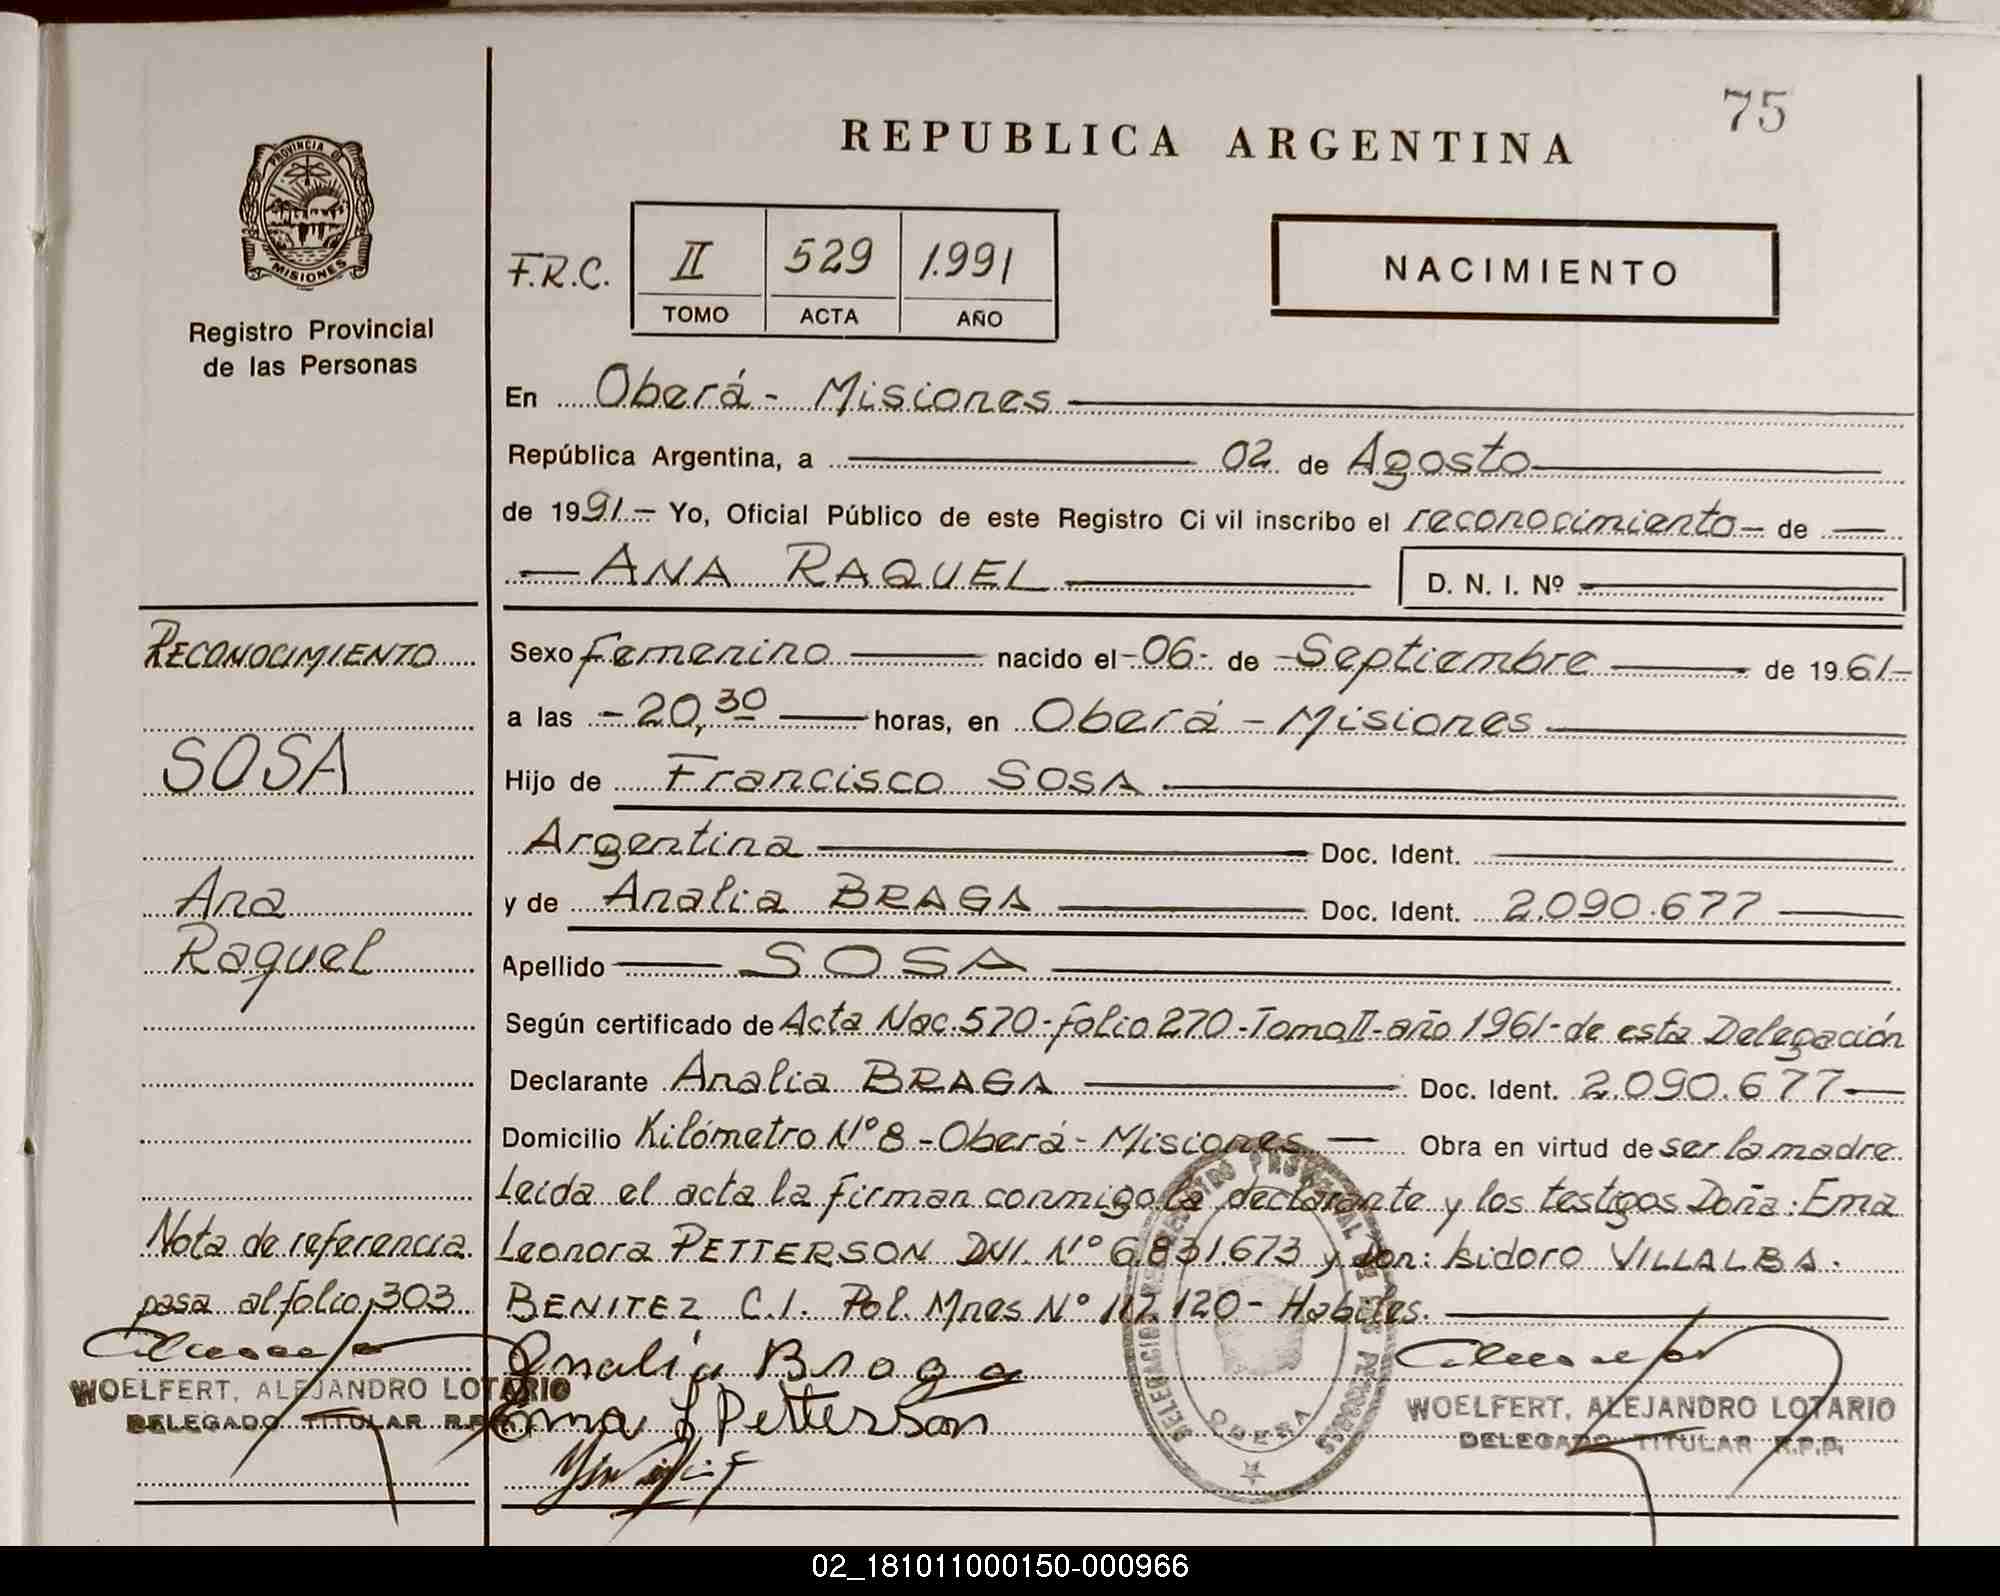 75
REPUBLICA ARGENTINA
PROVINCIA DE
MISIONES
Registro Provincial
de las Personas
F.R.C. II 529 1.991
TOMO ACTA AÑO
NACIMIENTO
En Oberá - Misiones
República Argentina, a 02 de Agosto
de 1991 - Yo, Oficial Público de este Registro Civil inscribo el reconocimiento - de
ANA RAQUEL D. N. I. Nº
Sexo Femenino nacido el -06- de -Septiembre de 1961-
a las -20,30 horas, en Oberá - Misiones
Hijo de Francisco SOSA
Argentina Doc. Ident.
y de Analia BRAGA Doc. Ident. 2.090.677
Apellido SOSA
Según certificado de Acta Nac. 570-folio 270-Tomo II-año 1961-de esta Delegación
Declarante Analia BRAGA Doc. Ident. 2.090.677
Domicilio Kilómetro Nº 8 - Oberá - Misiones Obra en virtud de ser la madre
Leida el acta la firman conmigo la declarante y los testigos Doña: Ema
Leonora PETTERSON DNI. Nº 6.831.673 y Don: Isidoro VILLALBA.
BENITEZ C.I. Pol. Mnes Nº 112.120 - Habiles.
Analia Braga
Ema L Petterson
RECONOCIMIENTO
SOSA
Ana
Raquel
Nota de referencia
pasa al folio 303
WOELFERT, ALEJANDRO LOTARIO
DELEGADO TITULAR R.P.P.
OBERA
WOELFERT, ALEJANDRO LOTARIO
DELEGADO TITULAR R.P.P.
02_181011000150-000966